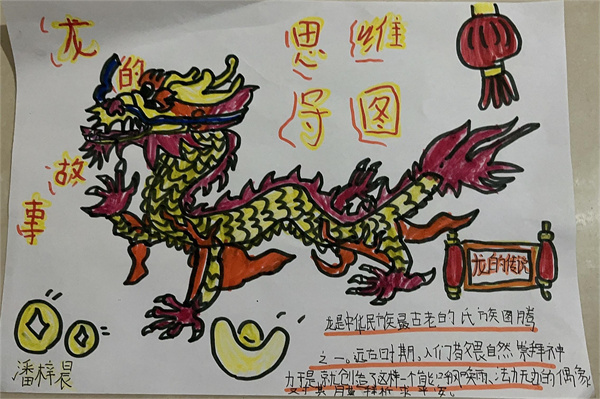 龙的故事
思维导图
龙的传说
龙是中华民族最古老的氏族图腾
之一。远古时期,人们敬畏自然,崇拜神
力于是就创造了这样一个能呼风唤雨、法力无边的偶像
潘梓晨